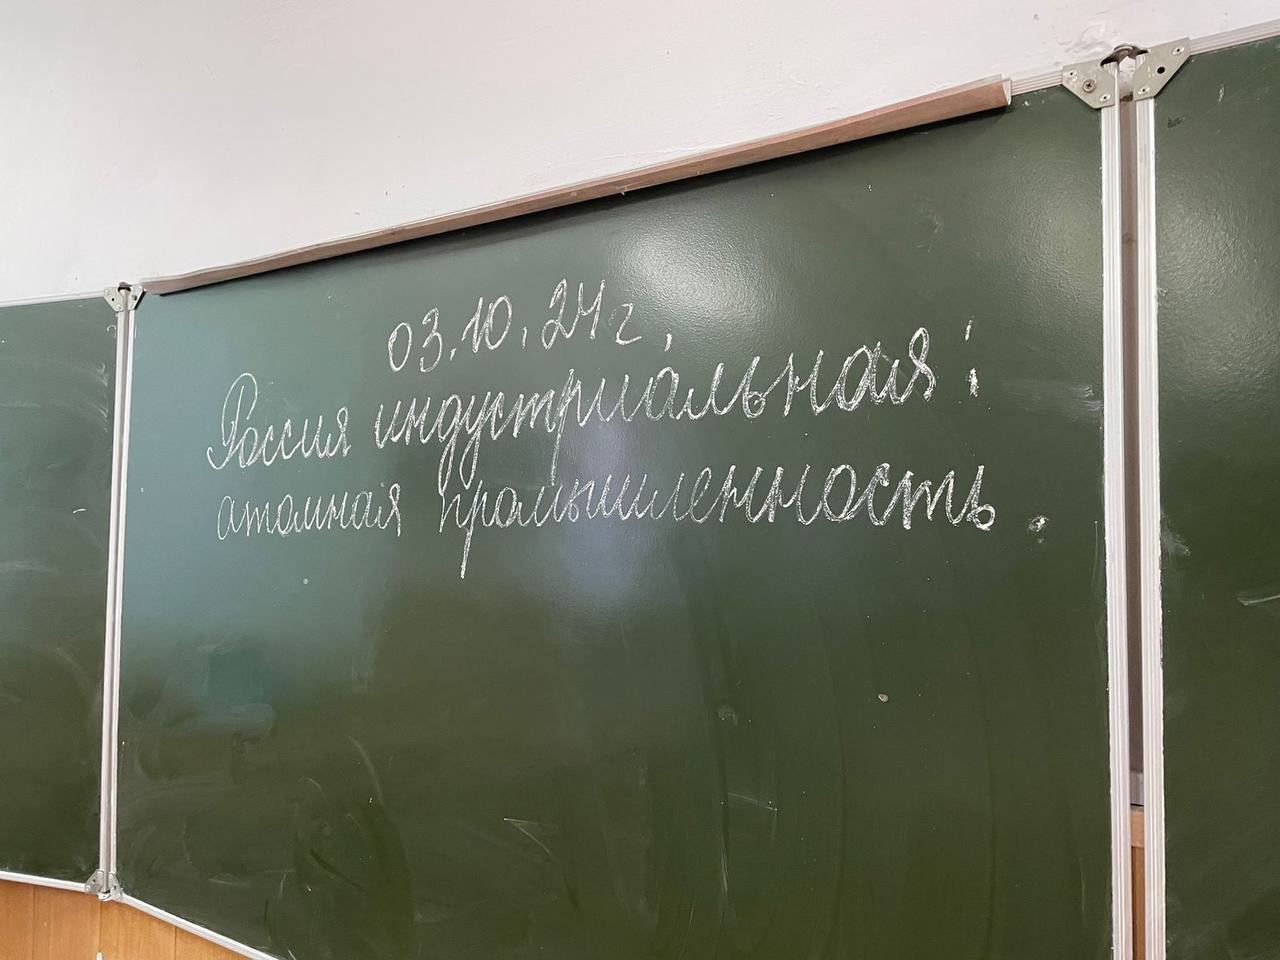 03.10.24г.
Россия индустриальная:
атомная промышленность.